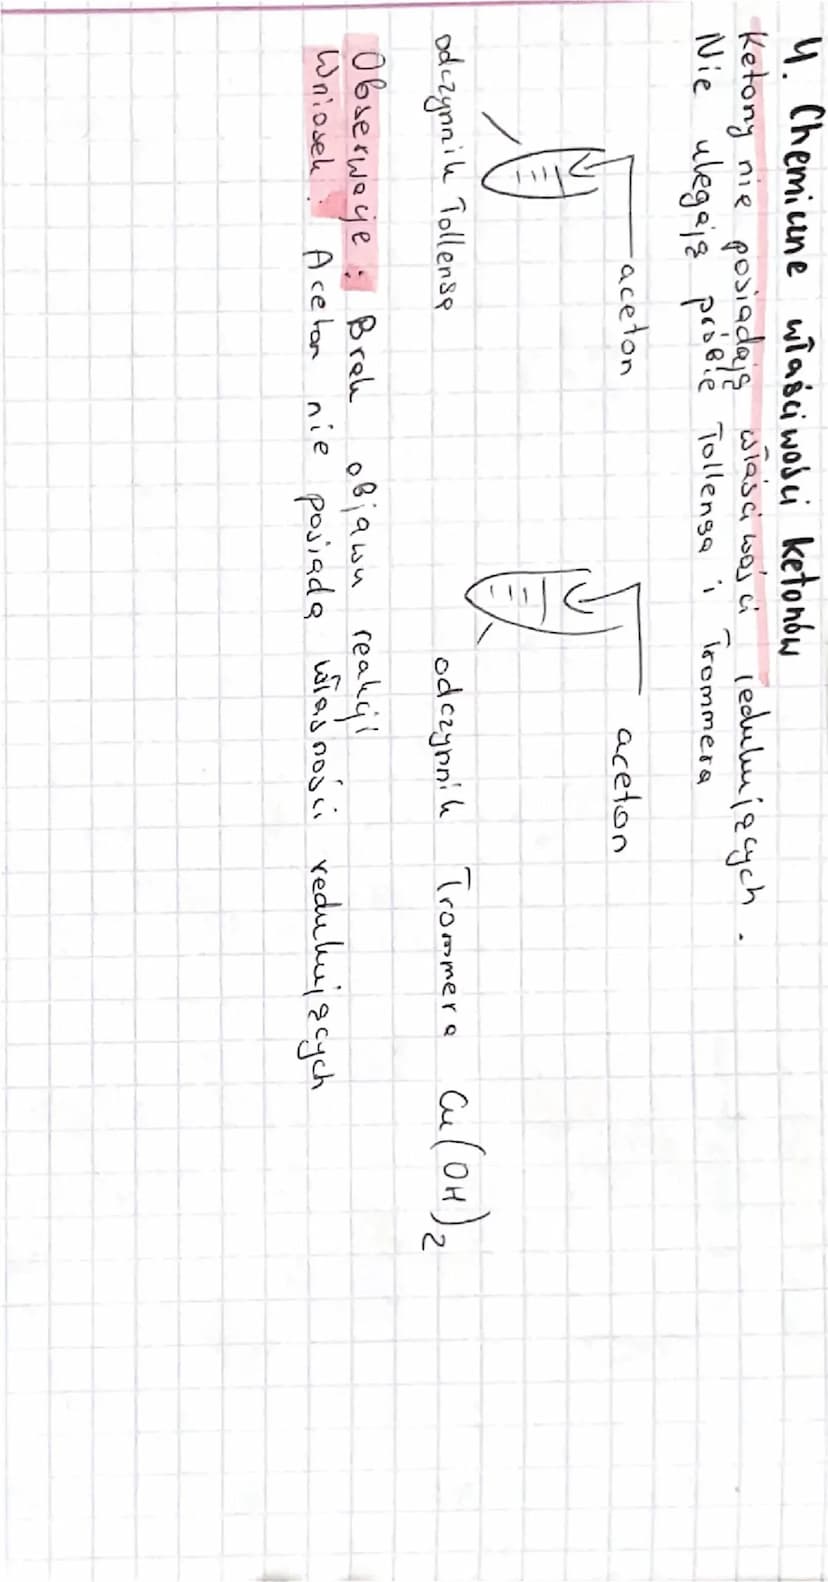 4. Chemiczne właściwości ketonów
Ketony nie posiadają właściwości redukujących.
Nie ulegają próbie Tollensa i Trommera
aceton
aceton
odczynnik Tollensa
odczynnik Trommera Cu(OH)2
Obserwacje: Brak objawu reakcji
Wniosek: Aceton nie posiada własności redukujących